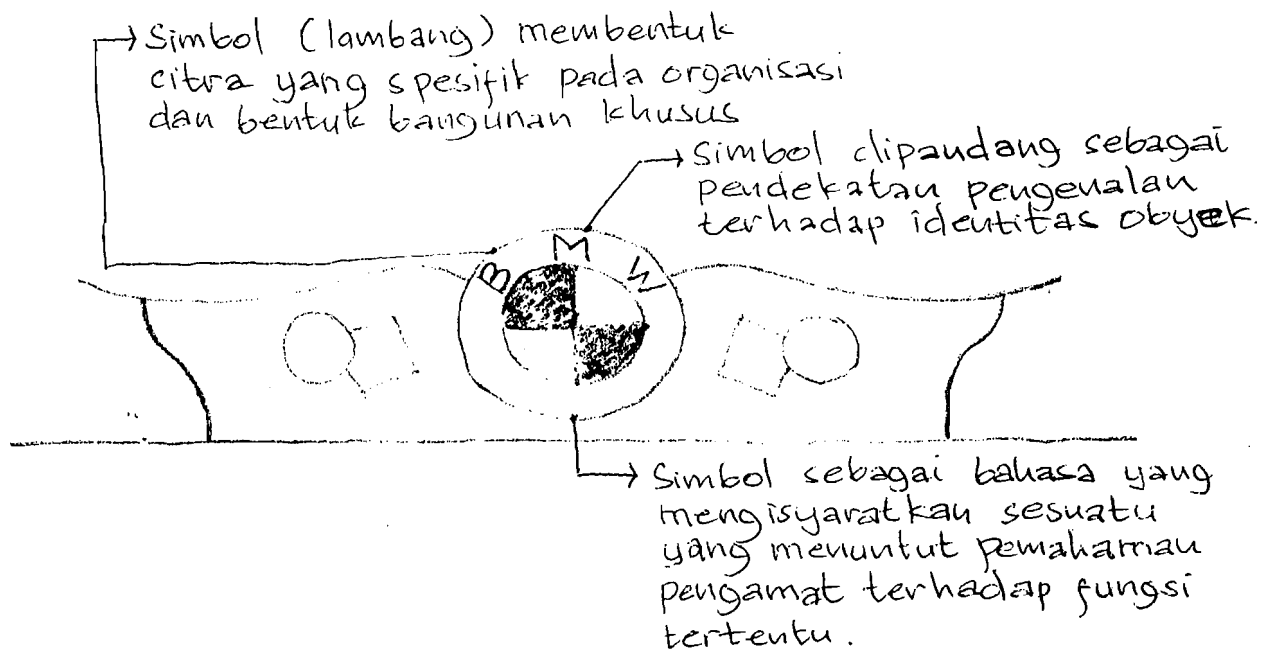 Simbol (lambang) membentuk
citra yang spesifik pada organisasi
dan bentuk bangunan khusus
Simbol dipandang sebagai
pendekatan pengenalan
terhadap identitas obyek.
B M W
Simbol sebagai bahasa yang
mengisyaratkan sesuatu
yang menuntut pemahaman
pengamat terhadap fungsi
tertentu.